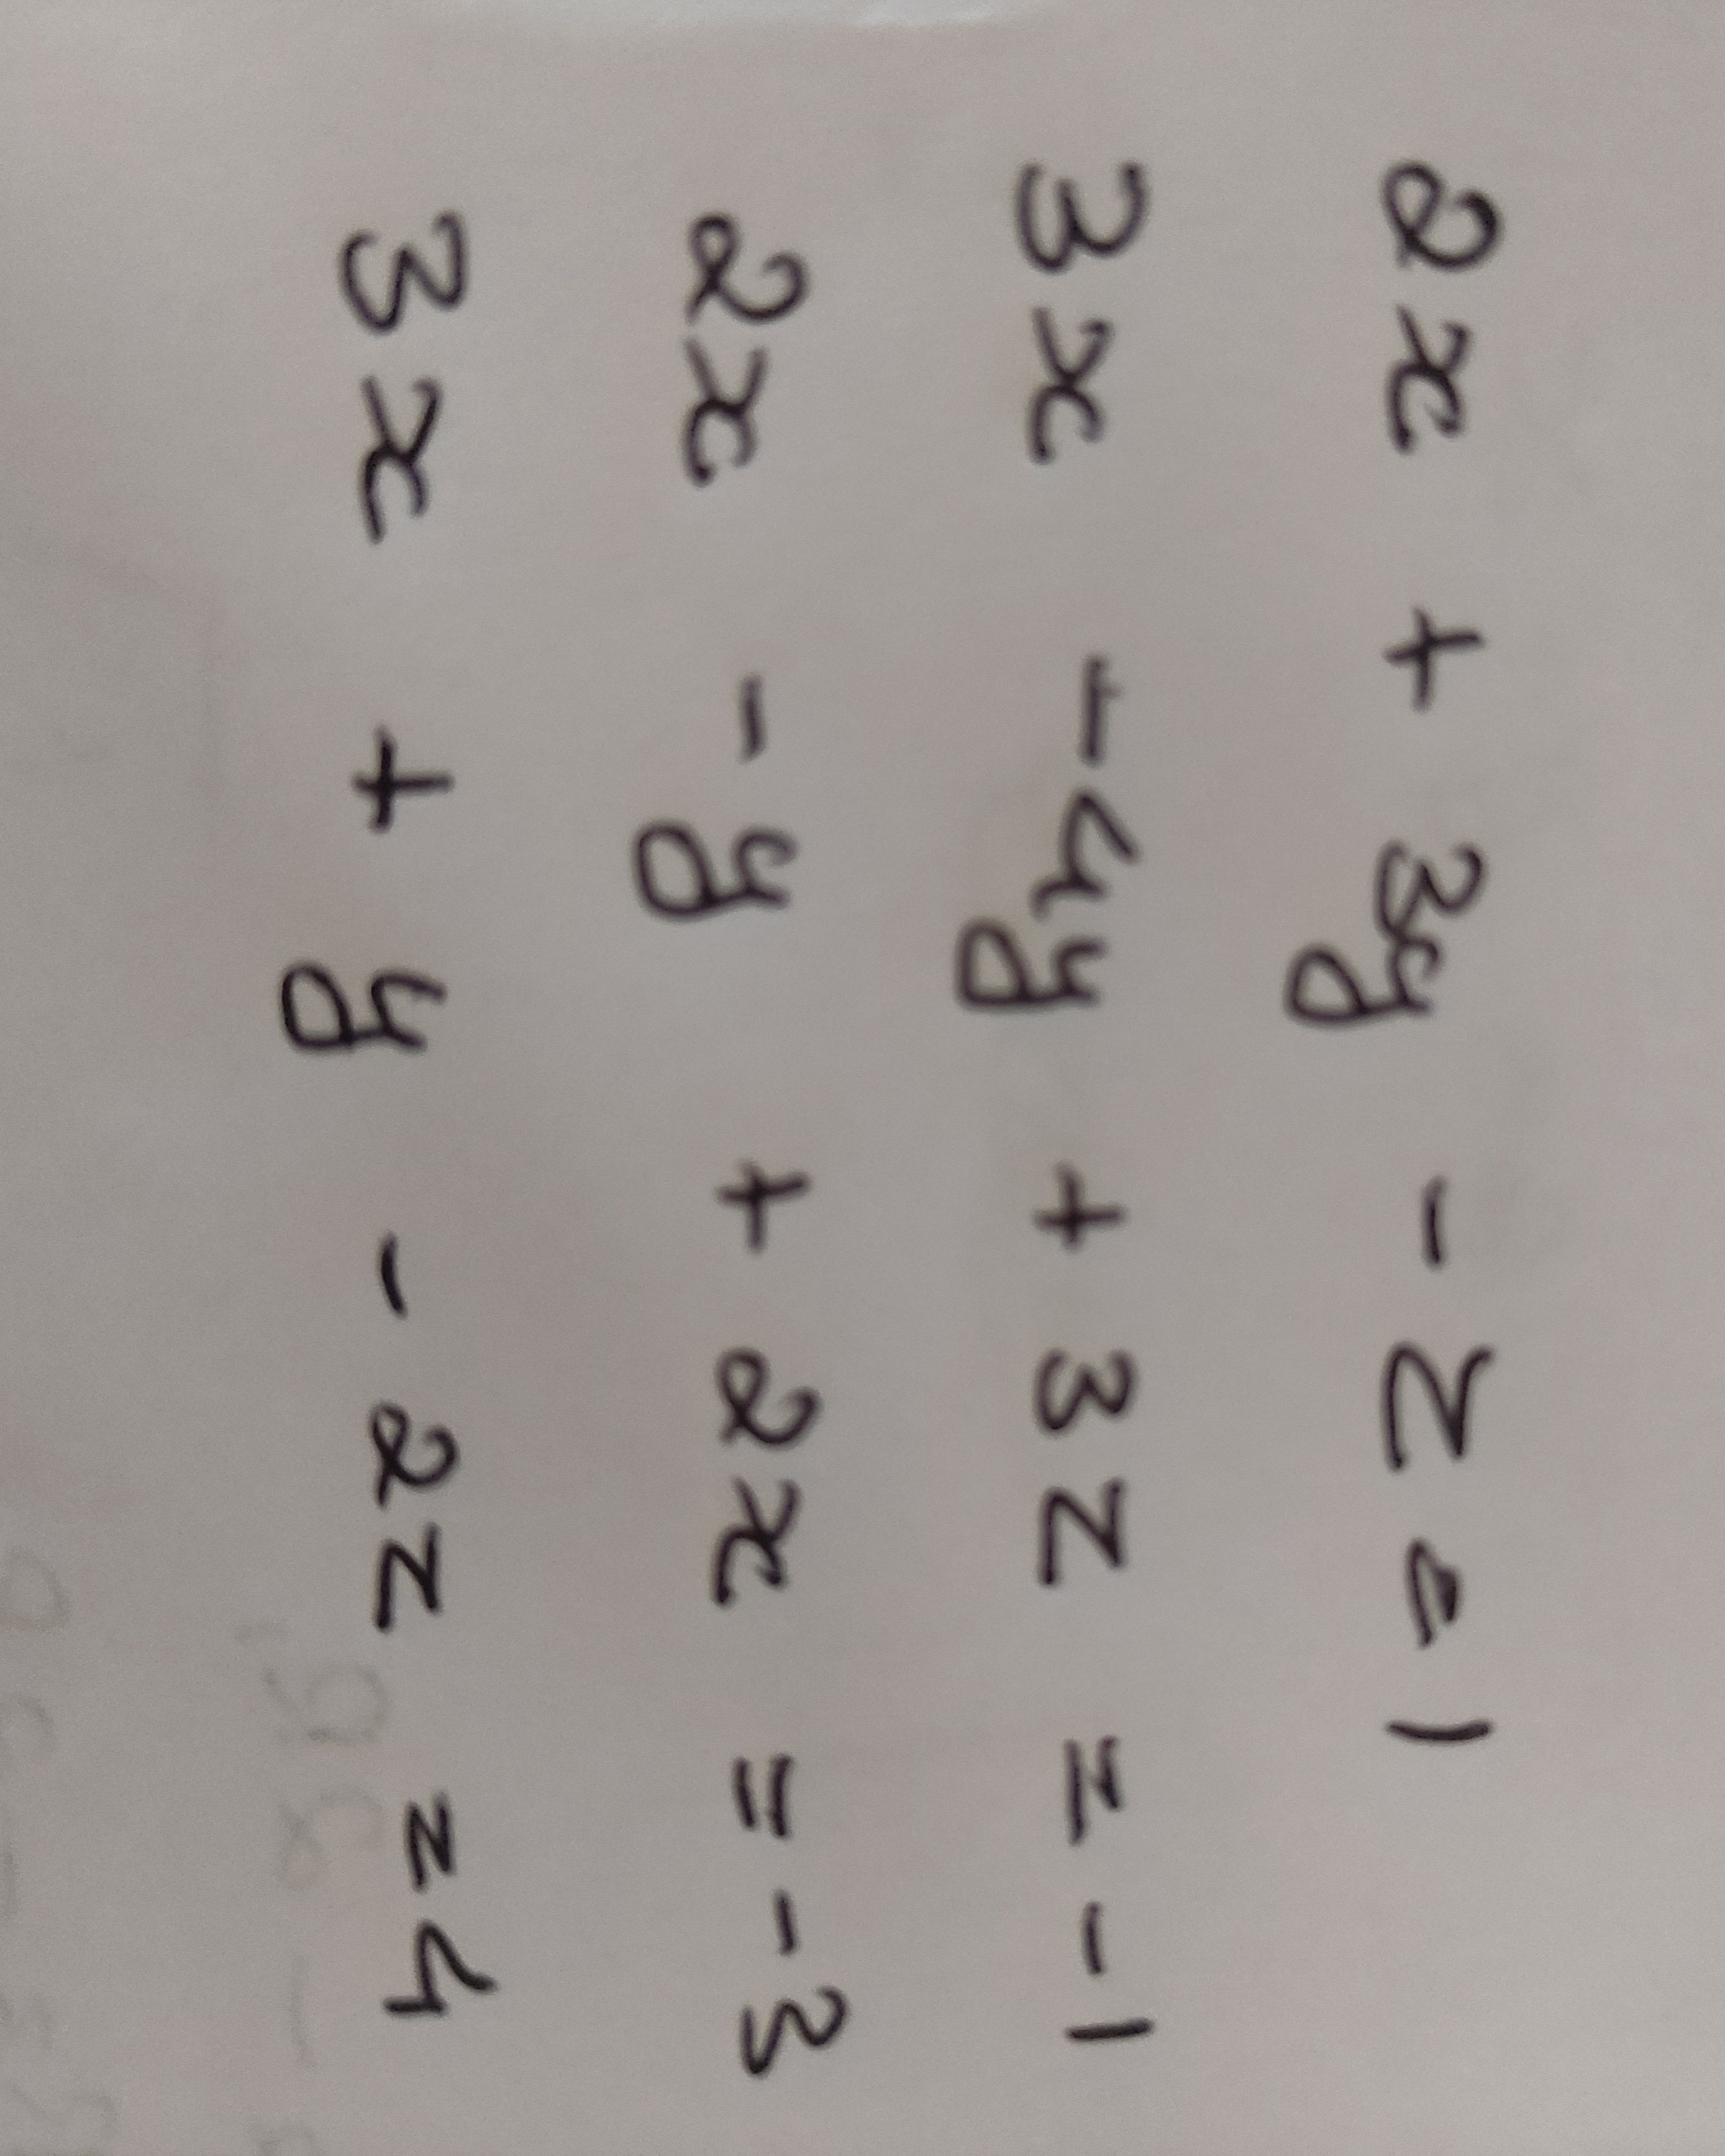 2x + 3y - z = 1
3x - 4y + 3z = -1
2x - y + 2x = -3
3x + y - 2z = 4